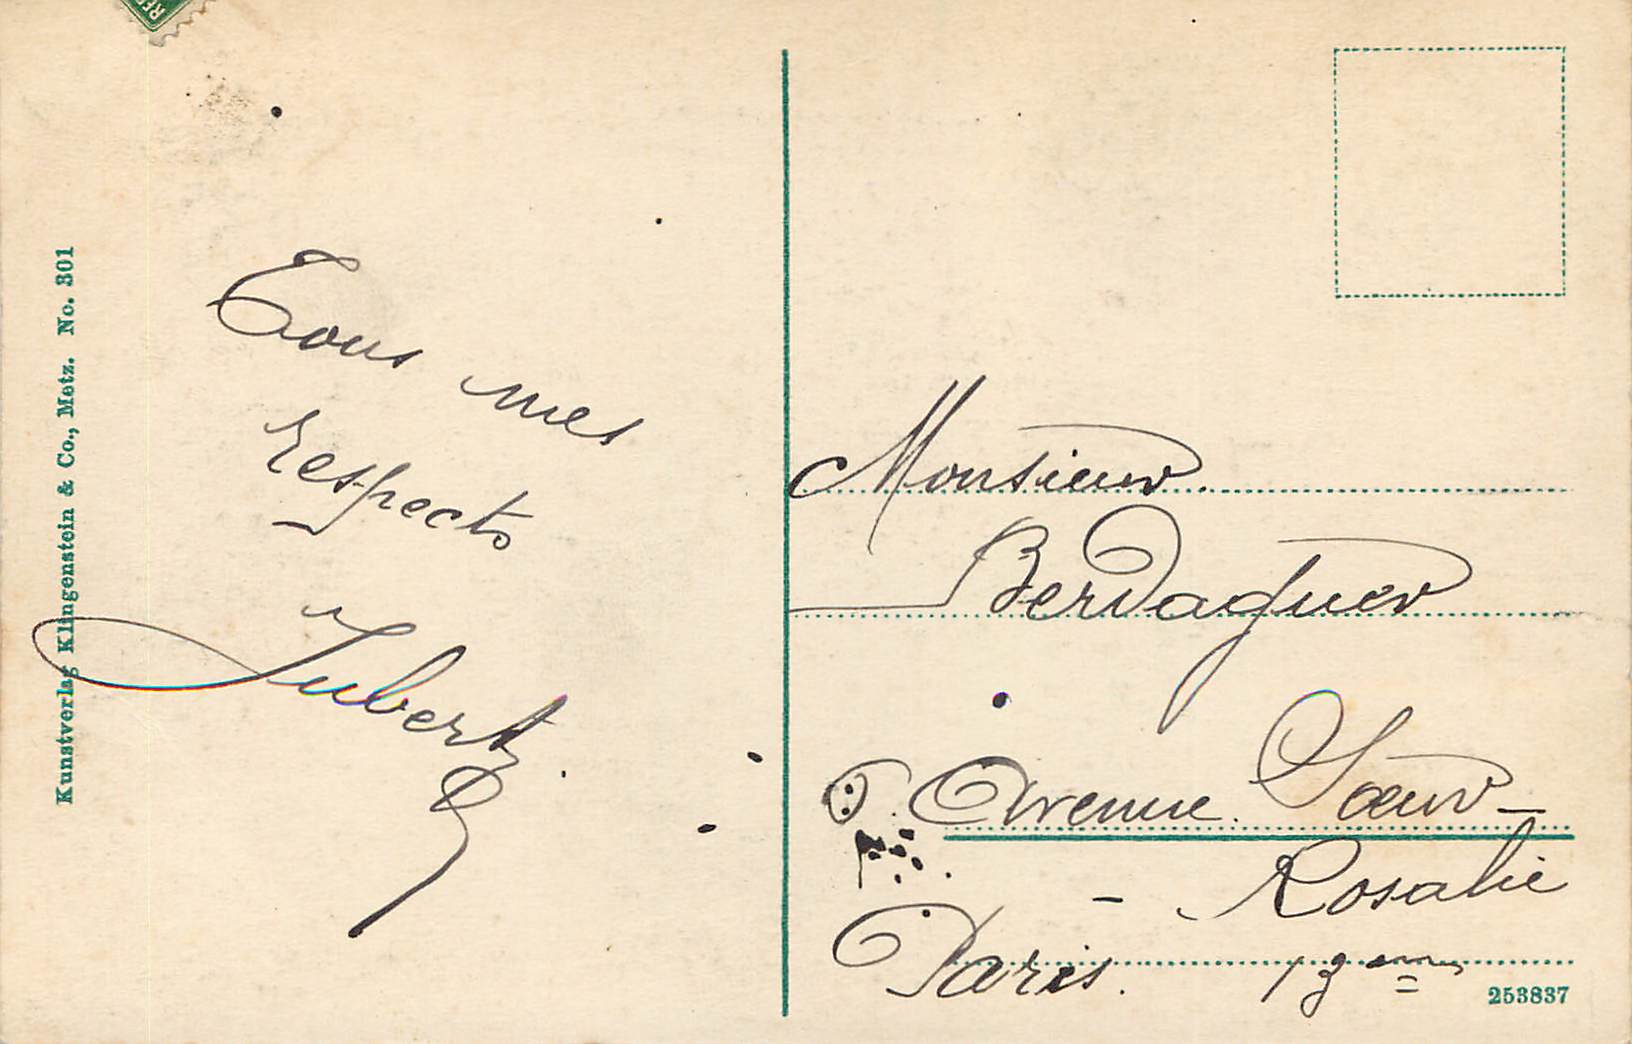 Kunstverlag Klingenstein & Co., Metz. No. 301
Tous mes
respects
Jubert
Monsieur
Berdaguer
9. Avenue Sœur-
- Rosalie
Paris. 13eme
253837